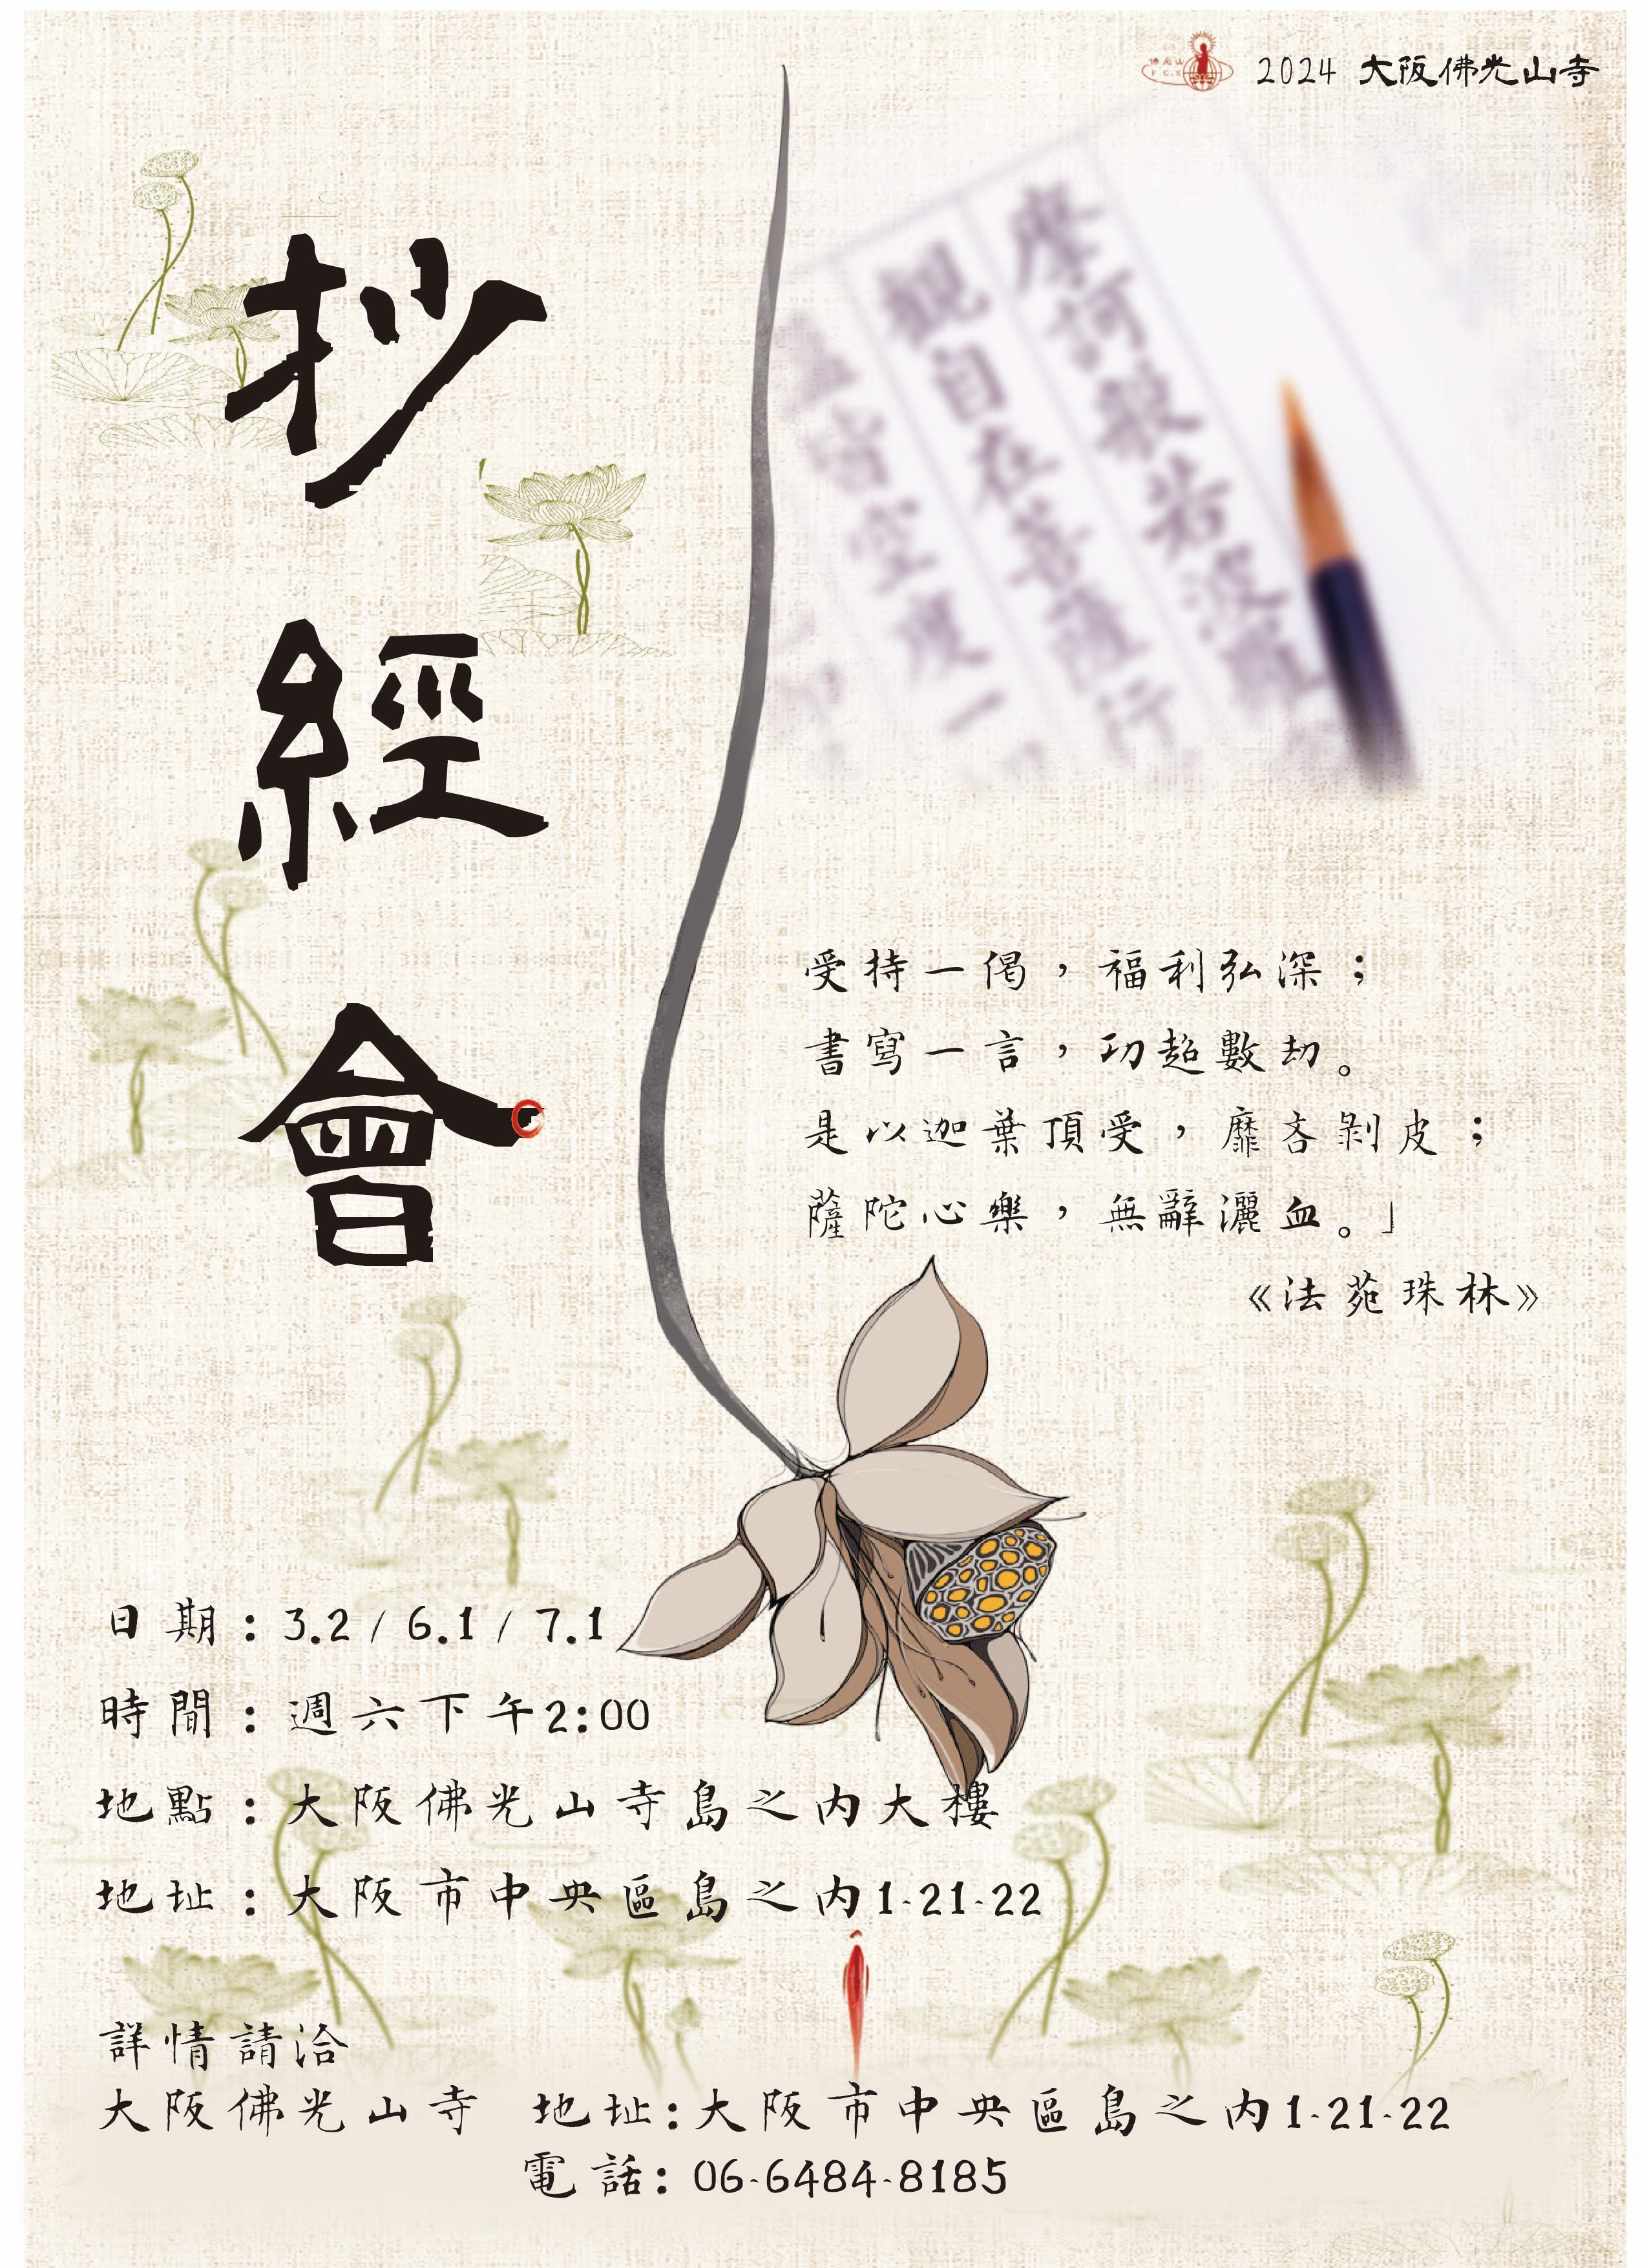 佛光山
F.G.S
2024 大阪佛光山寺
抄經會
摩訶般若波羅
觀自在菩薩行
皆空度一
受持一偈，福利弘深；
書寫一言，功超數劫。
是以迦葉頂受，靡吝剝皮；
薩陀心樂，無辭灑血。」
《法苑珠林》
日期：3.2 / 6.1 / 7.1
時間：週六下午2:00
地點：大阪佛光山寺島之內大樓
地址：大阪市中央區島之內1-21-22
詳情請洽
大阪佛光山寺 地址:大阪市中央區島之內1-21-22
電話: 06-6484-8185